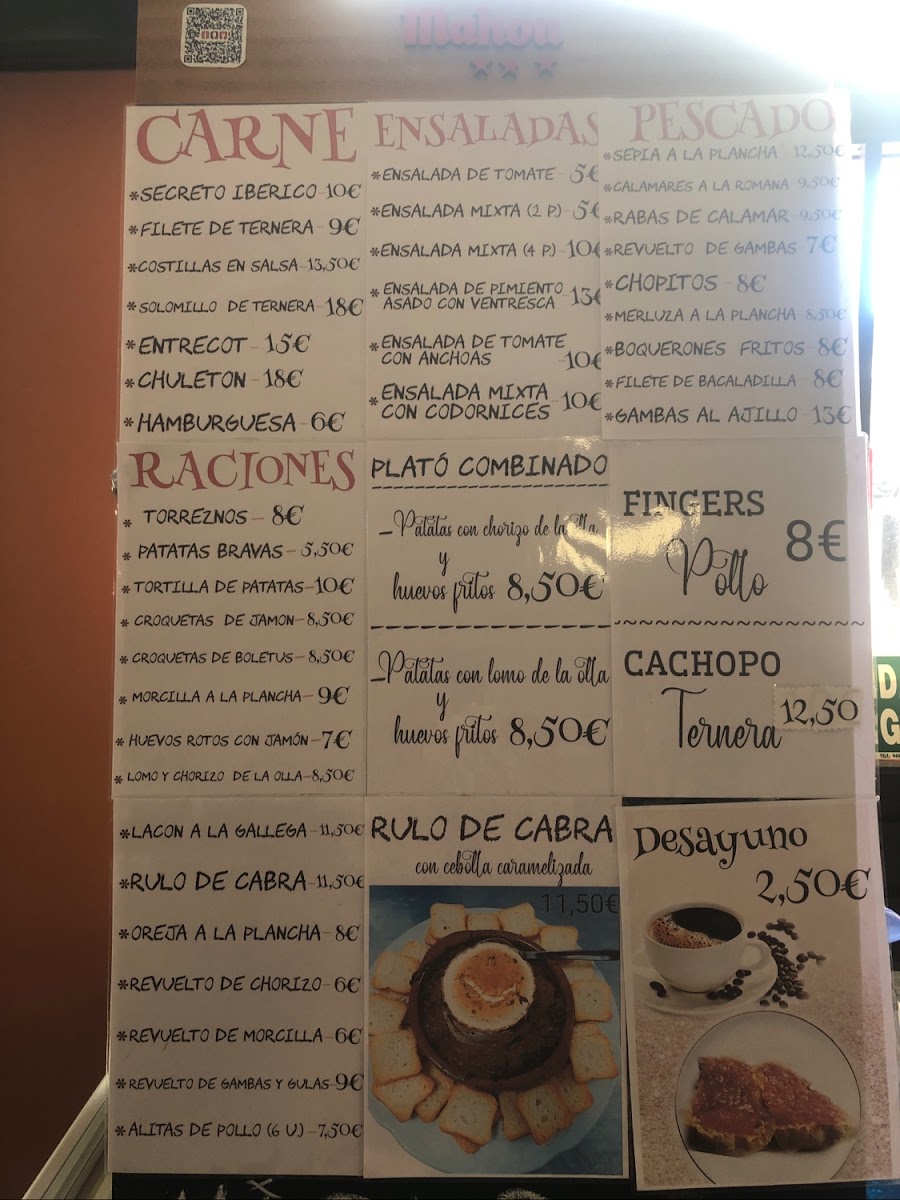 Mahou
CARNE
*SECRETO IBERICO-10€
*FILETE DE TERNERA-9€
*COSTILLAS EN SALSA-13,50€
*SOLOMILLO DE TERNERA-18€
*ENTRECOT-15€
*CHULETON-18€
*HAMBURGUESA-6€
ENSALADAS
*ENSALADA DE TOMATE-5€
*ENSALADA MIXTA (2 P.) 5€
*ENSALADA MIXTA (4 P.) 10€
*ENSALADA DE PIMIENTO
ASADO CON VENTRESCA-13€
*ENSALADA DE TOMATE
CON ANCHOAS -10€
*ENSALADA MIXTA
CON CODORNICES-10€
PESCADO
*SEPIA A LA PLANCHA 12,50€
*CALAMARES A LA ROMANA 9,50€
*RABAS DE CALAMAR-9,50€
*REVUELTO DE GAMBAS 7€
*CHOPITOS-8€
*MERLUZA A LA PLANCHA-8,50€
*BOQUERONES FRITOS 8€
*FILETE DE BACALADILLA-8€
*GAMBAS AL AJILLO-13€
RACIONES
* TORREZNOS-8€
* PATATAS BRAVAS-5,50€
*TORTILLA DE PATATAS-10€
* CROQUETAS DE JAMON-8,50€
* CROQUETAS DE BOLETUS-8,50€
* MORCILLA A LA PLANCHA-9€
* HUEVOS ROTOS CON JAMÓN-7€
* LOMO Y CHORIZO DE LA OLLA-8,50€
PLATÓ COMBINADO
-Patatas con chorizo de la olla
y
huevos fritos 8,50€
-Patatas con lomo de la olla
y
huevos fritos 8,50€
FINGERS
Pollo 8€
CACHOPO
Ternera 12,50
*LACON A LA GALLEGA-11,50€
*RULO DE CABRA-11,50€
*OREJA A LA PLANCHA-8€
*REVUELTO DE CHORIZO-6€
*REVUELTO DE MORCILLA-6€
*REVUELTO DE GAMBAS Y GULAS-9€
*ALITAS DE POLLO (6 U.)-7,50€
RULO DE CABRA
con cebolla caramelizada
11,50€
Desayuno
2,50€